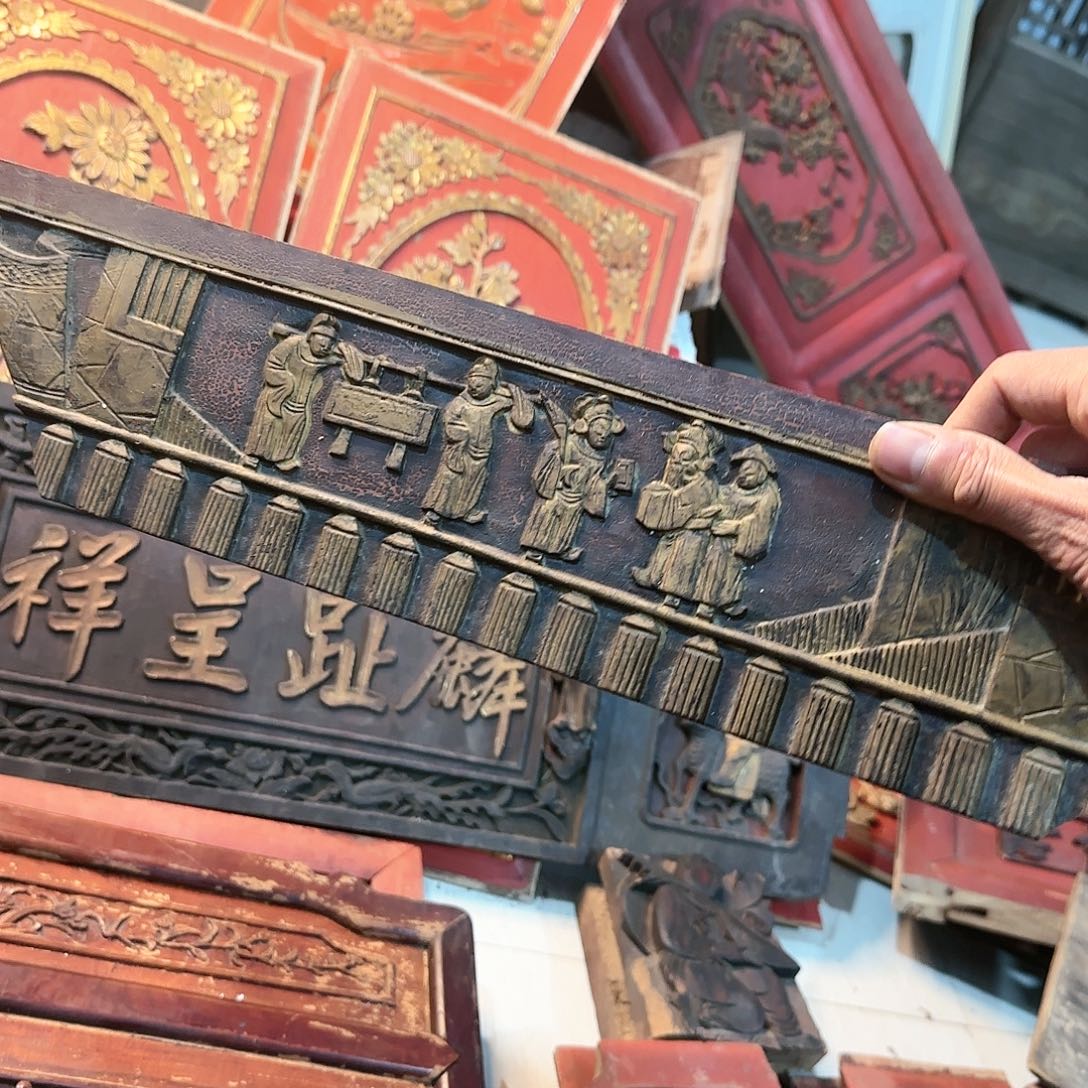 麟趾呈祥